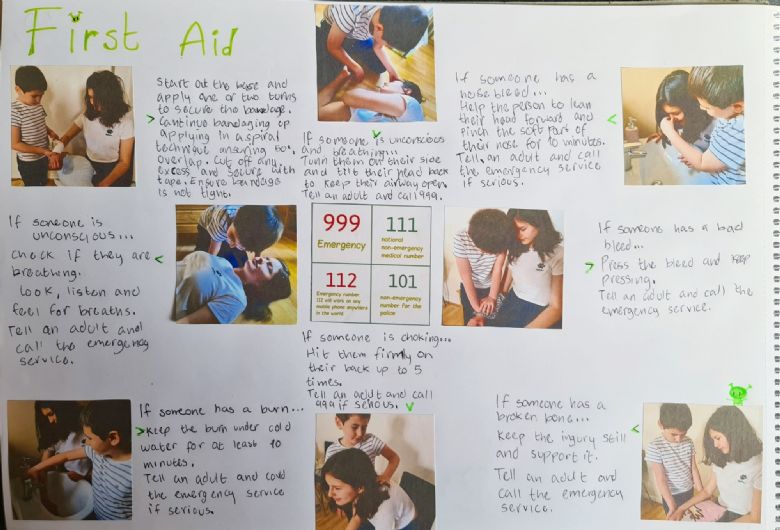 First Aid
Start at the base and
apply one or two turns
to secure the bandage.
Continue bandaging up
applying in a spiral
technique ensuring 50%
overlap. Cut off any
excess and secure with
tape. Ensure bandage
is not tight.
If someone is unconscious
and breathing...
Turn them on their side
and tilt their head back
to keep their airway open.
Tell an adult and call 999.
If someone has a
nosebleed...
Help the person to lean
their head forward and
pinch the soft part of
their nose for 10 minutes.
Tell an adult and call
the emergency service
if serious.
If someone is
unconscious...
check if they are
breathing.
Look, listen and
feel for breaths.
Tell an adult and
call the emergency
service.
999
Emergency
111
national
non-emergency
medical number
112
Emergency number
112 will work on any
mobile phone anywhere
in the world
101
non-emergency
number for the
police
If someone has a bad
bleed...
Press the bleed and keep
pressing.
Tell an adult and call the
emergency service.
If someone is choking...
Hit them firmly on
their back up to 5
times.
Tell an adult and call
999 if serious.
If someone has a burn...
Keep the burn under cold
water for at least 10
minutes.
Tell an adult and
the emergency service
if serious.
If someone has a
broken bone...
Keep the injury still
and support it.
Tell an adult and
call the emergency
service.